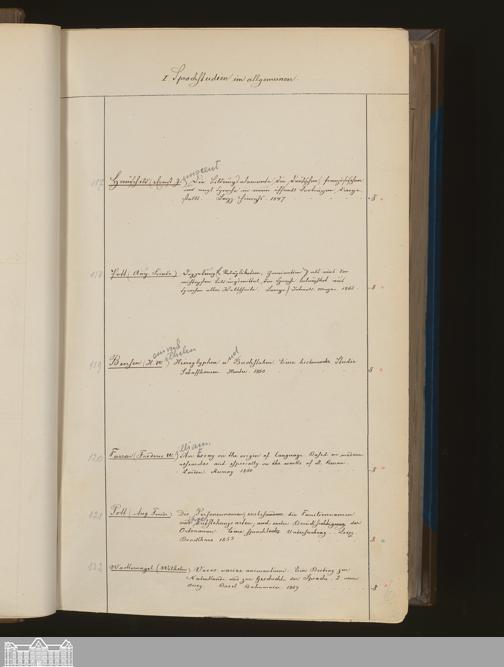 I Sprachstudien im allgemeinen.
117 Hauschild (Ernst J. innocent) Die Bildungselemente der deutschen, französischen
und engl. Sprache in neun öffentl. Vorträgen darge-
stellt. Leipz. Hinrichs. 1847 8
118 Pott (Aug. Friedr.) Doppelung (Reduplikation, Gemination) als eines der
wichtigsten Bildungsmittel der Sprache beleuchtet aus
Sprachen aller Welttheile. Lemgo / Detmold. Meyer. 1862. 8
119 (H. W.) Hieroglyphen u. Buchstaben. Eine historische Studie
Schaffhausen Hurter. 1860 8
120 Farrar (Frederic W. illiam) An essay on the origin of language. Based on modern
researches and especially on the works of M. Renan.
London Murray 1860 8
121 Pott (Aug. Friedr.) Die Personennamen, insbesondere die Familiennamen
und ihre Entstehungsarten, auch unter Berücksichtigung der
Ortsnamen. Eine sprachliche Untersuchung. Leipz.
Brockhaus 1853 8
122 Wackernagel (Wilhelm) Voces variae animantium. Ein Beitrag zur
Naturkunde und zur Geschichte der Sprache. 2 verm.
Ausg. Basel Bahnmaier. 1869 8